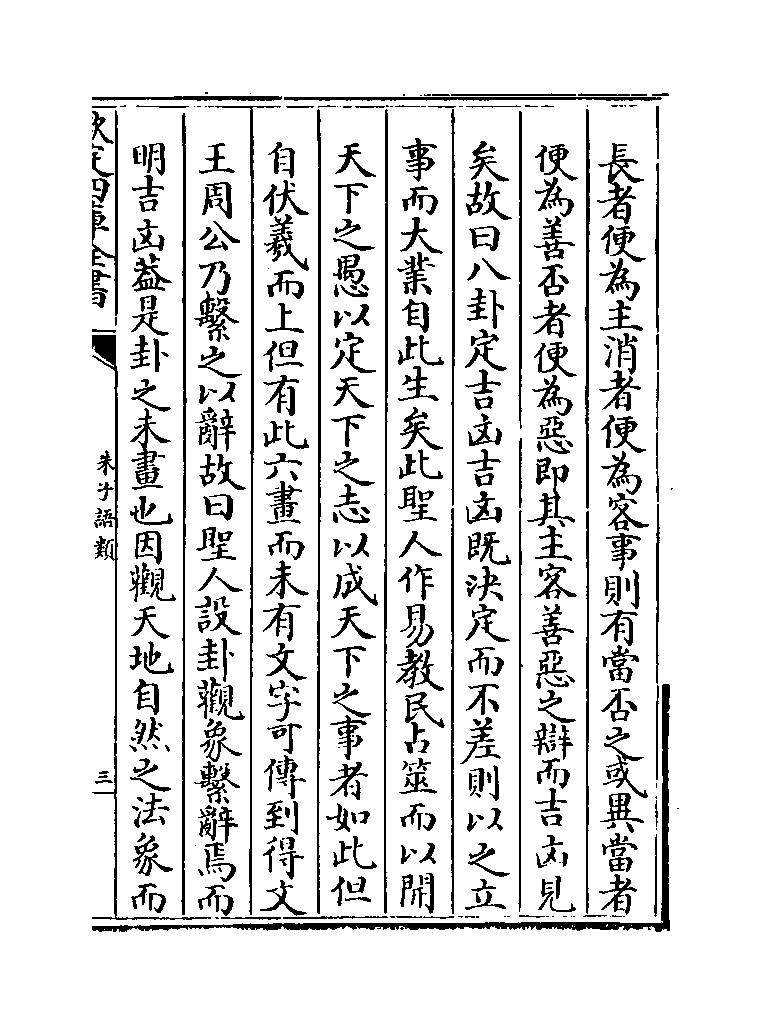 長者便為主消者便為客事則有當否之或異當者
便為善否者便為惡即其主客善惡之辯而吉凶見
矣故曰八卦定吉凶吉凶既決定而不差則以之立
事而大業自此生矣此聖人作易教民占筮而以開
天下之愚以定天下之志以成天下之事者如此但
自伏羲而上但有此六畫而未有文字可傳到得文
王周公乃繫之以辭故曰聖人設卦觀象繫辭焉而
明吉凶葢是卦之未畫也因觀天地自然之法象而
欽定四庫全書
朱子語類
三